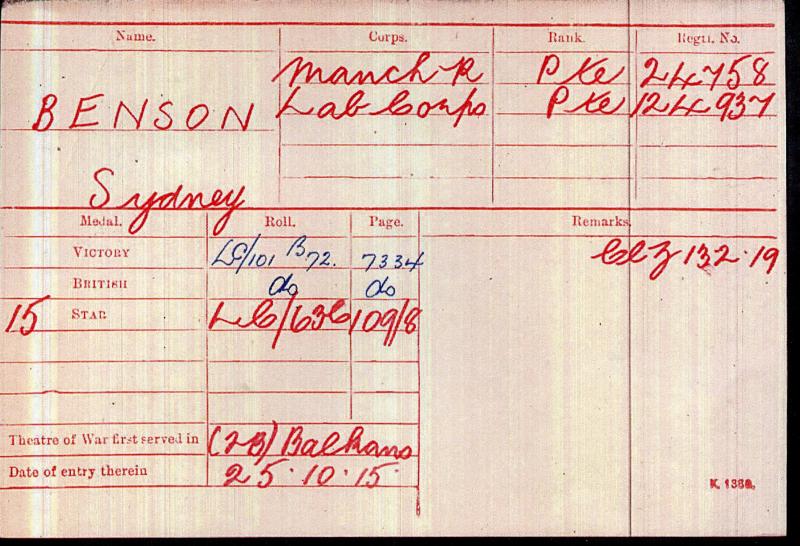 Name. Corps. Rank. Regtl. No.
Manch R Pte 24758
BENSON Lab Corps Pte 124937
Sydney
Medal. Roll. Page. Remarks.
VICTORY LC/101 B72. 7334 Cl Z 132.19
BRITISH do do
15 STAR LC/63C 109/8
Theatre of War first served in (2B) Balkans
Date of entry therein 25.10.15
K. 1380.